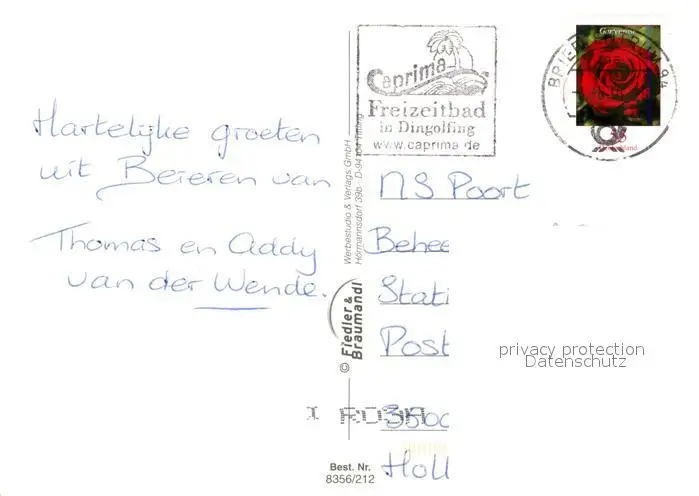 Hartelijke groeten
uit Beieren van
Thomas en Addy
van der Wende.
Caprima
Freizeitbad
in Dingolfing
www.caprima.de
Werbestudio & Verlags GmbH
Hörmannsdorf 39b · D-94104 Tittling
© Fiedler &
Braumandl
Best. Nr.
8356/212
Gartenrose
BRIEFZENTRUM 94
NS Poort
Behee
Stati
Post
350
Holl
privacy protection
Datenschutz